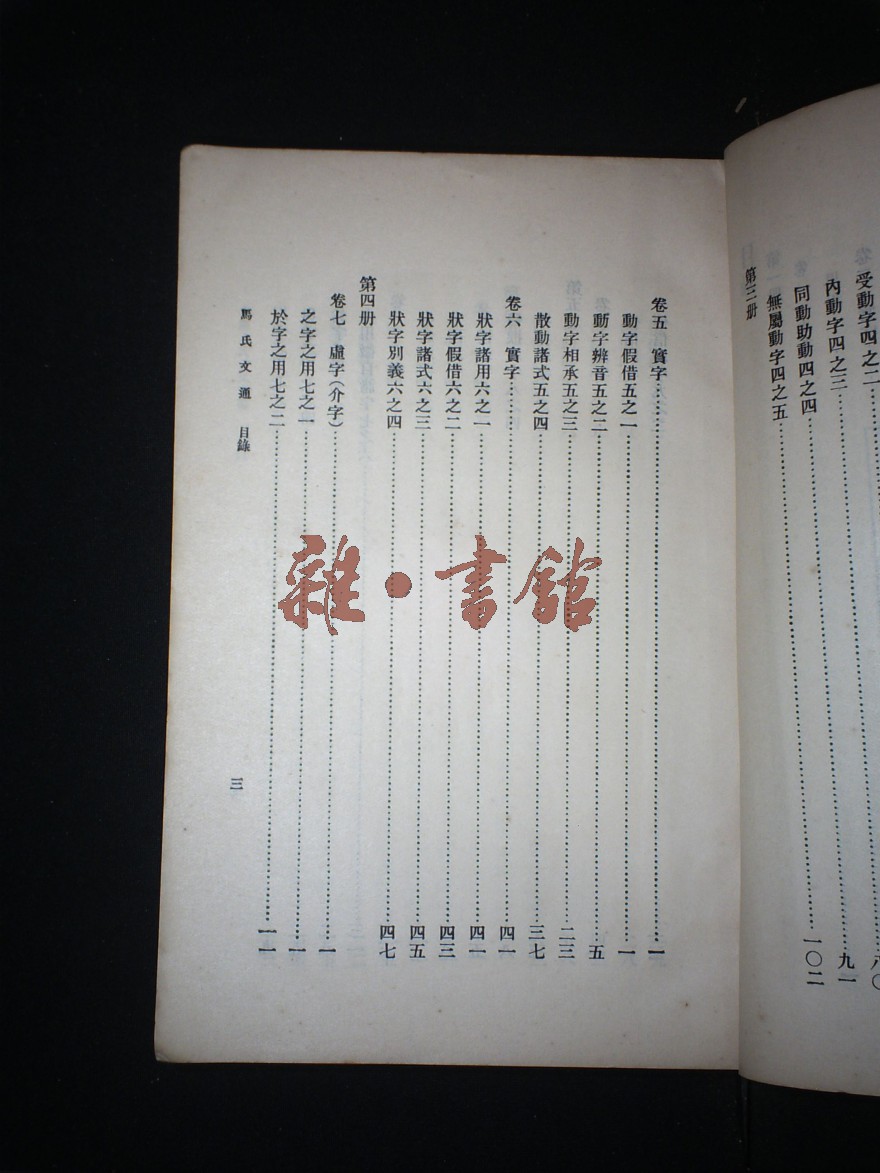 受動字四之二……八〇
內動字四之三……九一
同動助動四之四……一〇二
無屬動字四之五
第三册
卷五 實字……一
動字假借五之一……一
動字辨音五之二……五
動字相承五之三……二三
散動諸式五之四……三七
卷六 實字……四一
狀字諸用六之一……四一
狀字假借六之二……四三
狀字諸式六之三……四五
狀字別義六之四……四七
第四册
卷七 虛字(介字)……一
之字之用七之一……一
於字之用七之二……一一
馬氏文通 目錄
三
雜·書館